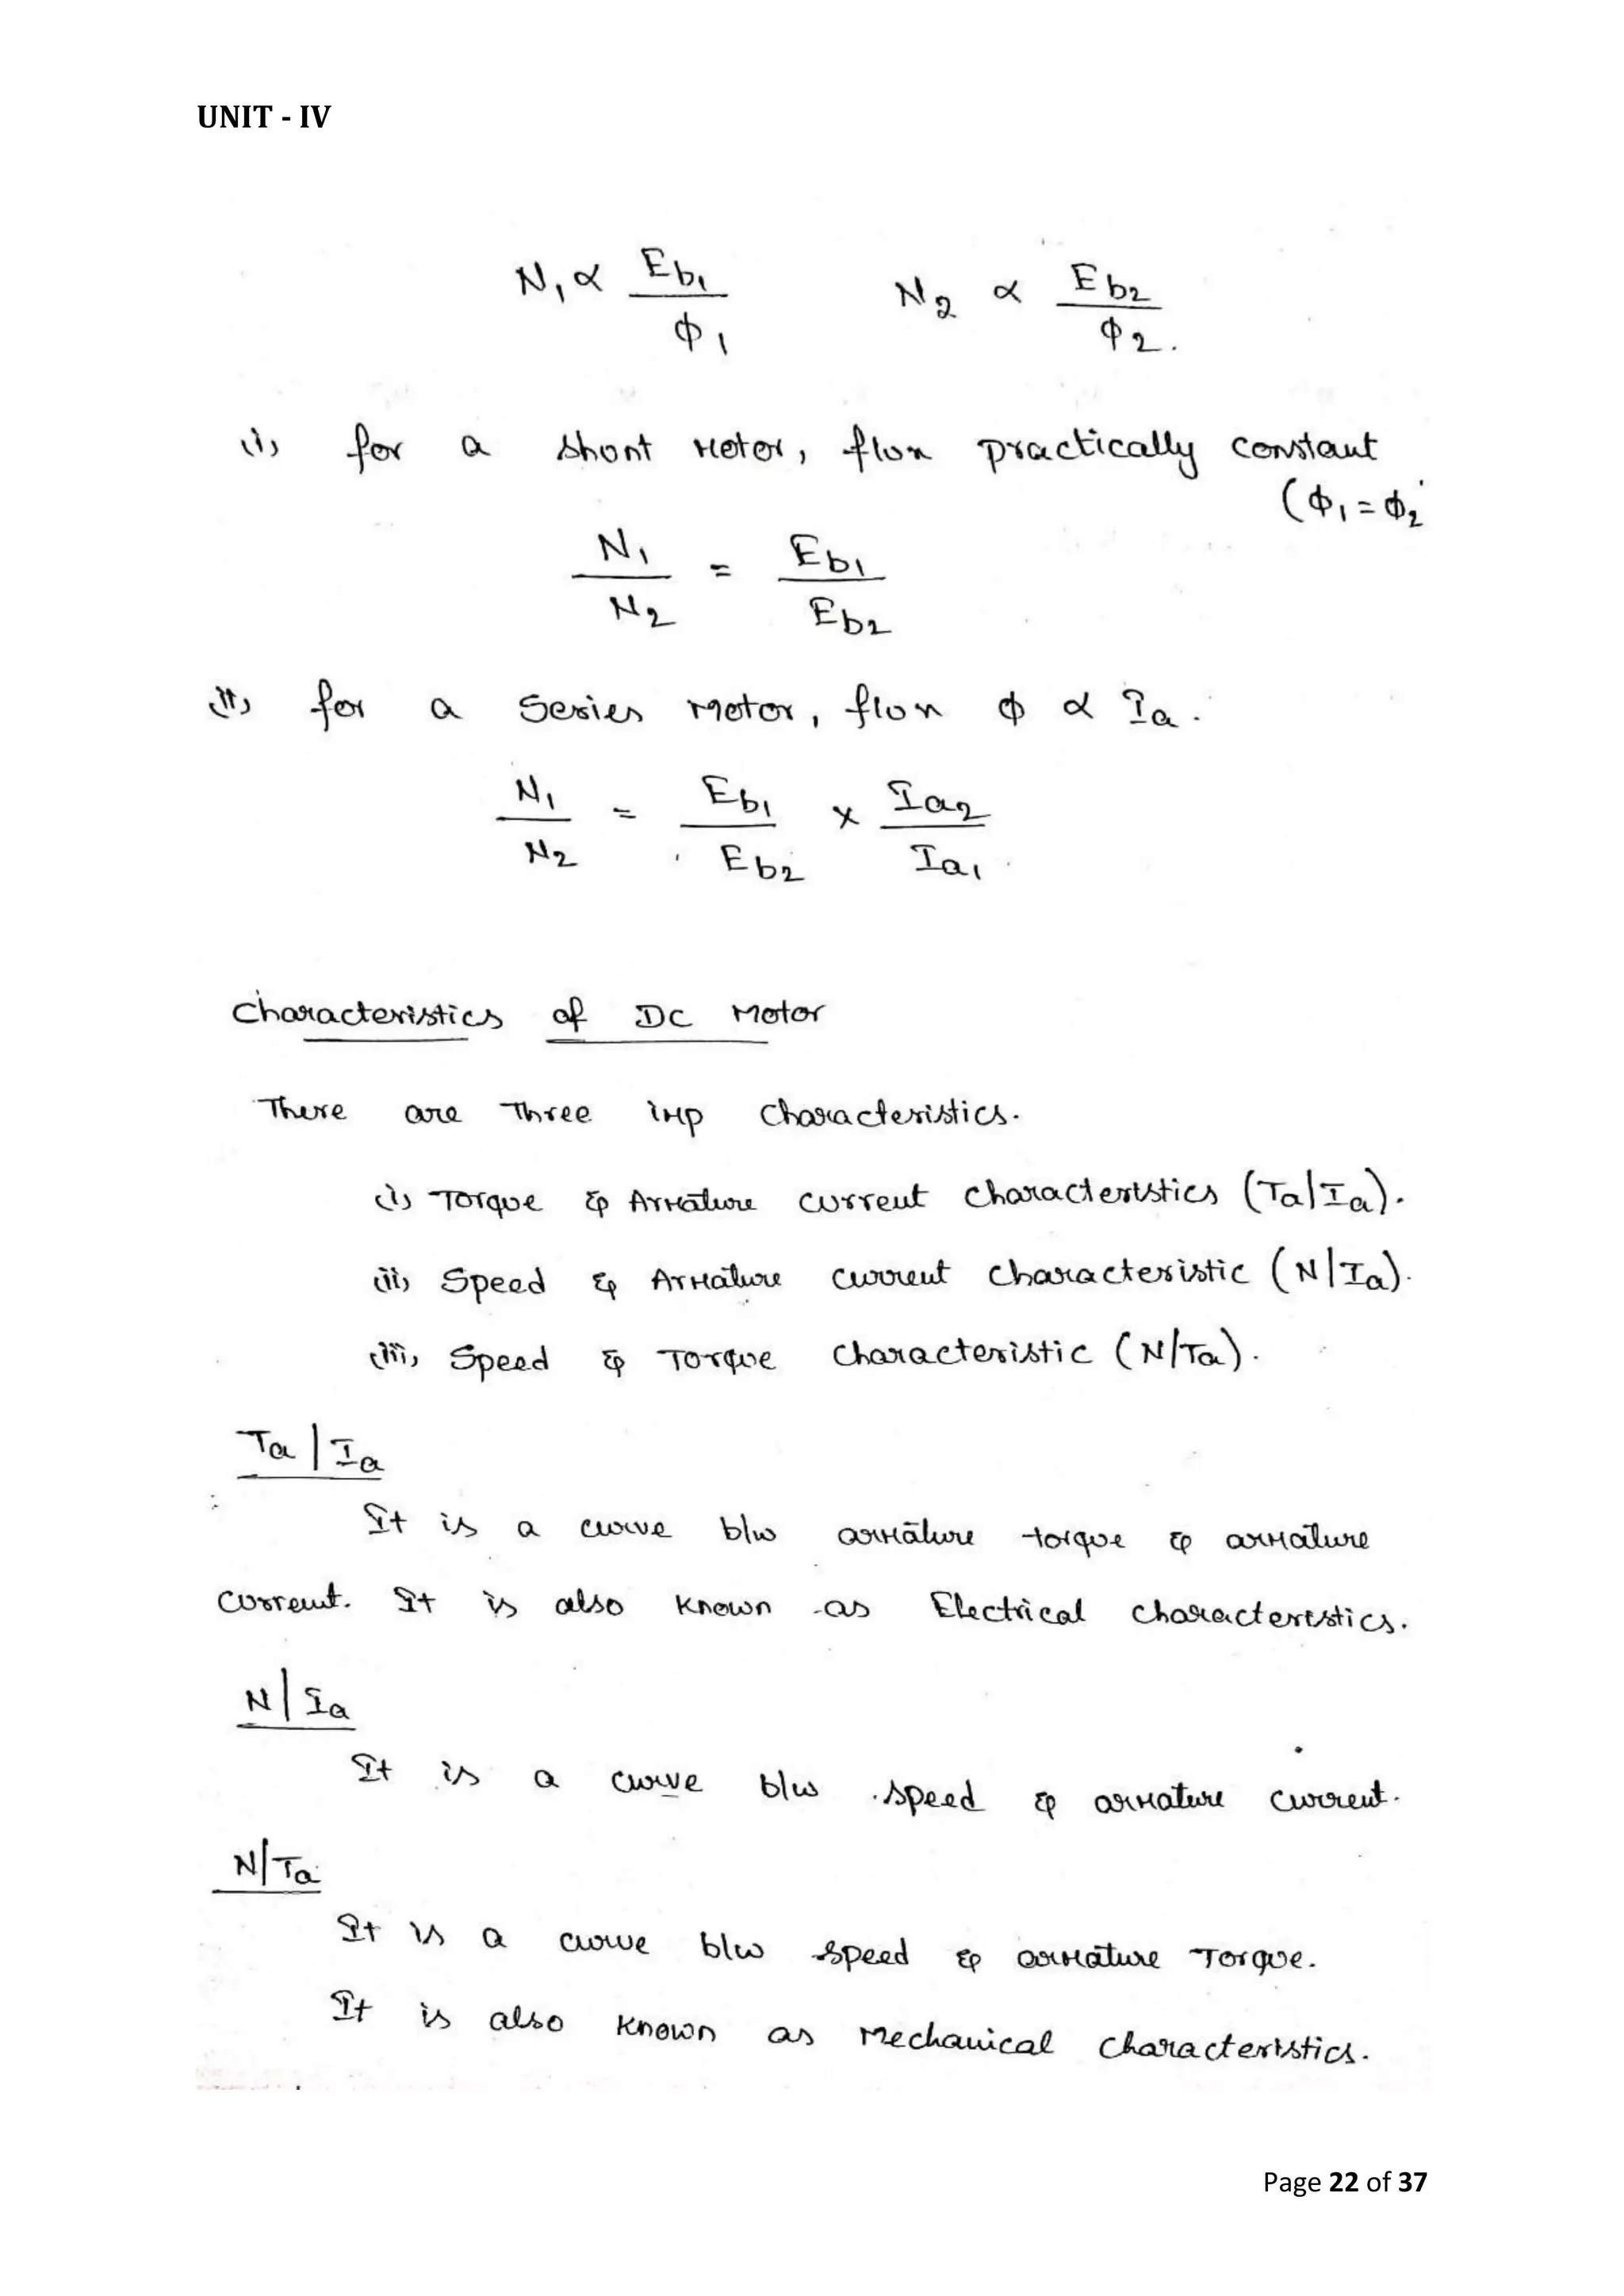 UNIT - IV
N₁ ∝ Eb₁ / Φ₁    N₂ ∝ Eb₂ / Φ₂.
(i) for a shunt Motor, flux practically constant
(Φ₁ = Φ₂
N₁ / N₂ = Eb₁ / Eb₂
(ii) for a series Motor, flux Φ ∝ Ia.
N₁ / N₂ = Eb₁ / Eb₂ × Ia₂ / Ia₁
Characteristics of DC Motor
There are Three imp characteristics.
(i) Torque & Armature current characteristics (Ta|Ia).
(ii) Speed & Armature current characteristic (N|Ia).
(iii) Speed & Torque characteristic (N/Ta).
Ta | Ia
It is a curve b/w armature torque & armature
current. It is also known as Electrical characteristics.
N | Ia
It is a curve b/w speed & armature current.
N/Ta
It is a curve b/w speed & armature Torque.
It is also known as Mechanical characteristics.
Page 22 of 37